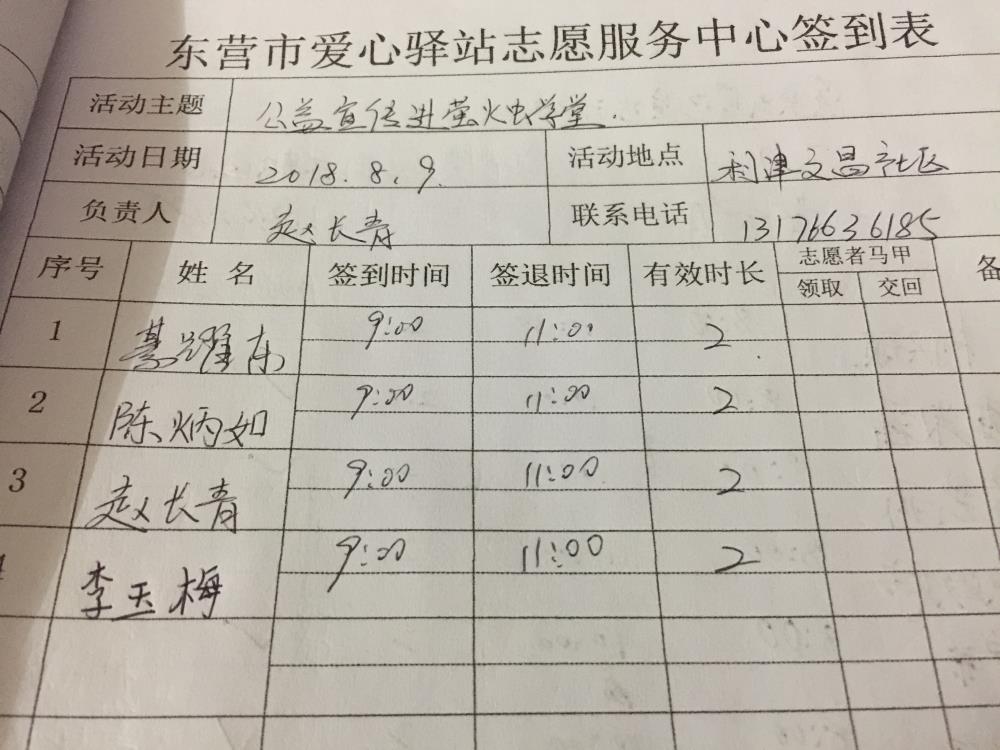 东营市爱心驿站志愿服务中心签到表
活动主题 公益宣传进萤火虫学堂.
活动日期 2018.8.9. 活动地点 利津文昌社区
负责人 赵长青 联系电话 13176636185
序号 姓名 签到时间 签退时间 有效时长 志愿者马甲 备
领取 交回
1 綦耀东 9:00 11:00 2
2 陈炳如 9:00 11:00 2
3 赵长青 9:00 11:00 2
4 李玉梅 9:00 11:00 2